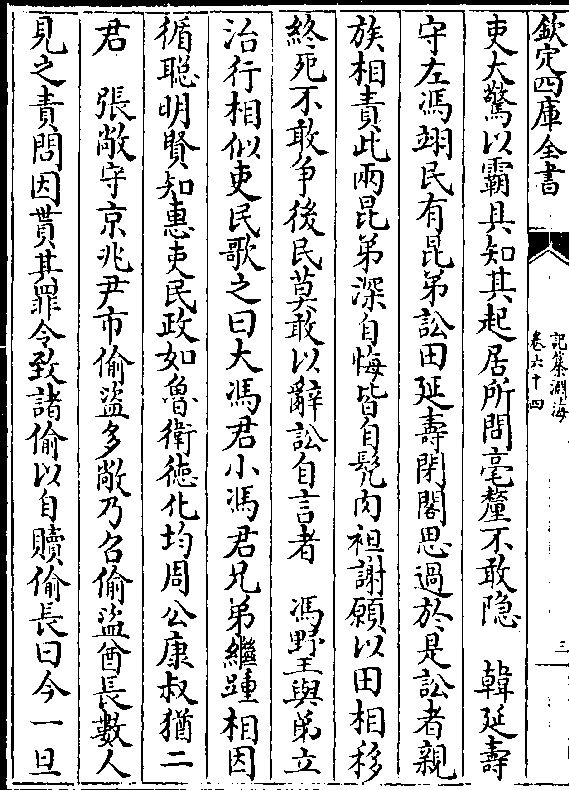 欽定四庫全書
記纂淵海
卷六十四
三
吏大驚以霸具知其起居所問毫釐不敢隐　韓延壽
守左馮翊民有昆弟訟田延壽閉閣思過於是訟者親
族相責此兩昆弟深自悔皆自髠肉袒謝願以田相移
終死不敢争後民莫敢以辭訟自言者　馮野王與弟立
治行相似吏民歌之曰大馮君小馮君兄弟繼踵相因
循聪明賢知惠吏民政如魯衛徳化均周公康叔猶二
君　張敞守京兆尹市偷盜多敞乃召偷盜酋長數人
見之責問因貰其罪令致諸偷以自贖偷長曰今一旦